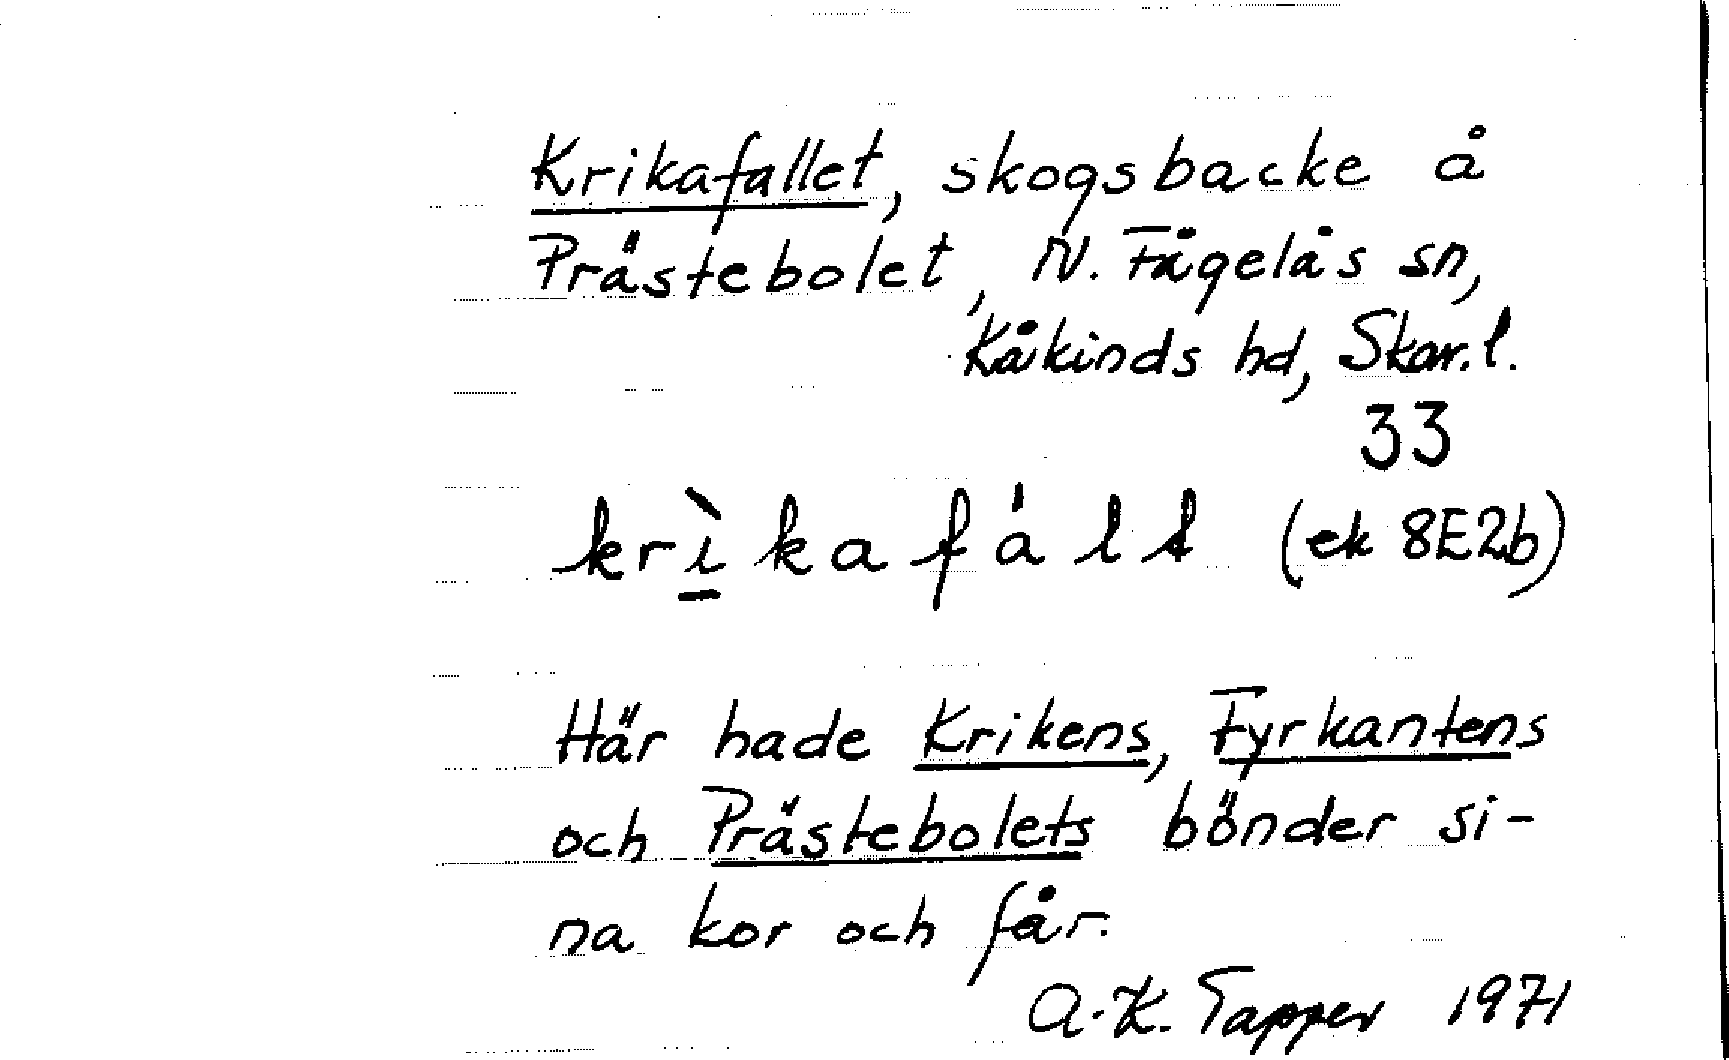 Krikafallet, skogsbacke å
Prästebolet, N. Fågelås sn,
Kåkinds hd, Skar.l.
33
krì̠kafált (ek 8E2b)
Här hade Krikens, Fyrkantens
och Prästebolets bönder si-
na kor och får.
A-K. Tapper 1971